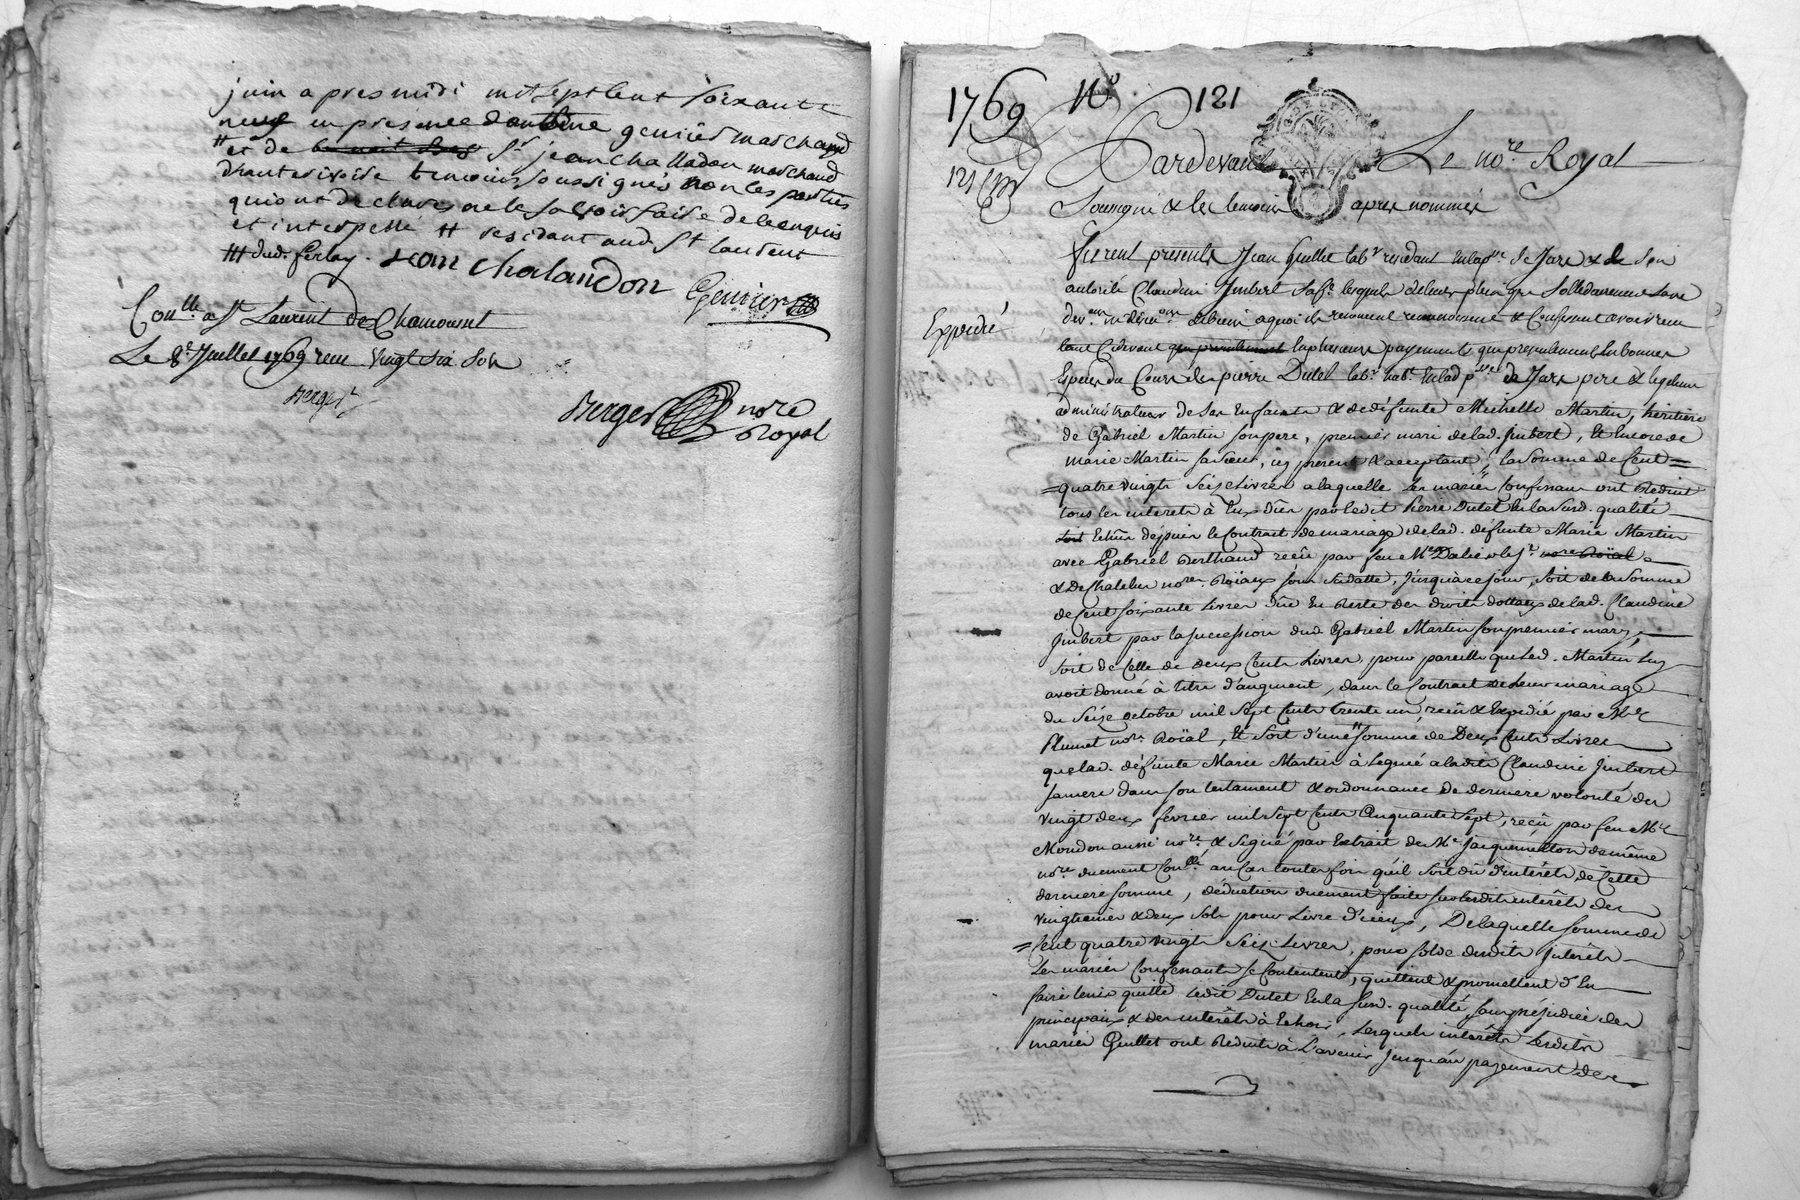 juin apres midi mil sept Cent soixante
neuf en presence d'antoine genrier marchand
# et de benoit Sr jean challadon marchand
d'hauterivoire temoins soussignés non les parties
qui ont declarés ne le savoir faire de ce enquis
et interpellé # residant aud. St laurent
## dud. ferlay. Jean Chalandon Genrier
Conllé a St Laurent de Chamousset
Le 8e Juillet 1769 reçu vingt six sols
Berger
Berger nore
Royal
1769 No. 121
121
Pardevant Le nore Royal
Soussigné & les temoins apres nommés
Expedié
furent presents Jean Guillet labr residant en la pse de Jars & de son
autorité Claudine Imbert sa fe lesquels de leur plein gré sollidairement sans
aquoi ils renoncent reconnoissent & Confessent avoir reçu
tant Cidevant que presentement en plusieurs payements que presentement en bonnes
Especes du Cours de pierre Dutel labr habt en lad pse de Jars pere & legitime
administrateur de ses Enfants & de defunte Michelle Martin, héritiere
de Gabriel Martin son pere, premier mari de lad. Imbert, Et Encore de
marie Martin sa sœur, icy present & acceptant, la somme de Cent =
= quatre vingts Seize Livres a laquelle les mariés Confessants ont Reduit
tous les interets à Eux dûs par ledit Pierre Dutel En la susd. qualité
soit Echûs depuis le Contrat de mariage de lad. défunte Marie Martin
avec Gabriel Berthaud reçû par feu Me nore Roïal
& De Chatelus nores Roïaux sous sa datte, jusqu'à ce jour, soit de la somme
de Cent soixante Livres dûe En Reste des droits dottaux de lad. Claudine
Imbert par la succession dud Gabriel Martin son premier mary,
soit de Celle de deux Cents Livres, pour pareille que led. Martin luy
avoit donné à titre d'augment, dans le Contract de leur mariage
du Seize octobre mil Sept Cents trente un reçû & Expedié par Me
Plumet nore Roïal, Et soit d'une somme de Deux Cents Livres
que lad. défunte Marie Martin à Legué a ladite Claudine Imbert
sa mere dans son testament & ordonnance de derniere volonté du
vingt deux fevrier mil sept Cents Cinquante sept, reçû par feu Me
Mondon aussi nore, & signé par Extrait de Me Jacquemetton de même
nore duement Conllé au Cas toutes fois qu'il soit dû d'intérêts de Cette
derniere somme, déduction duement faite sur lesdits intérêts des
vingtiemes & deux sols pour Livre d'iceux, De laquelle somme de
= Cent quatre vingts Seize Livres, pour solde desdits interêts
les mariés Confessants se Contentent, quittent & promettent d'En
faire tenir quitte ledit Dutel En la susd. qualité, sans préjudice des
principaux & des interêts à Echoir, Lesquels interêts Lesdits
mariés Guillet ont Reduits à L'avenir jusqu'au payement des